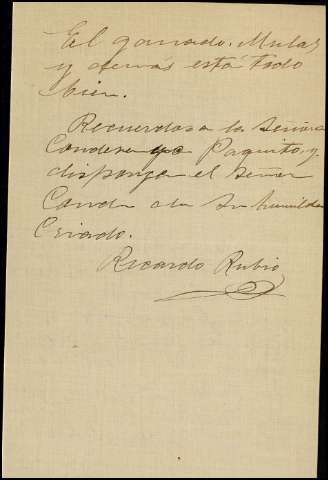 El ganado. Mulas
y demás está todo
bien.
Recuerdos a la Señora
Condesa y a Paquito, y
disponga el Señor
Conde a su humilde
Criado.
Ricardo Rubio